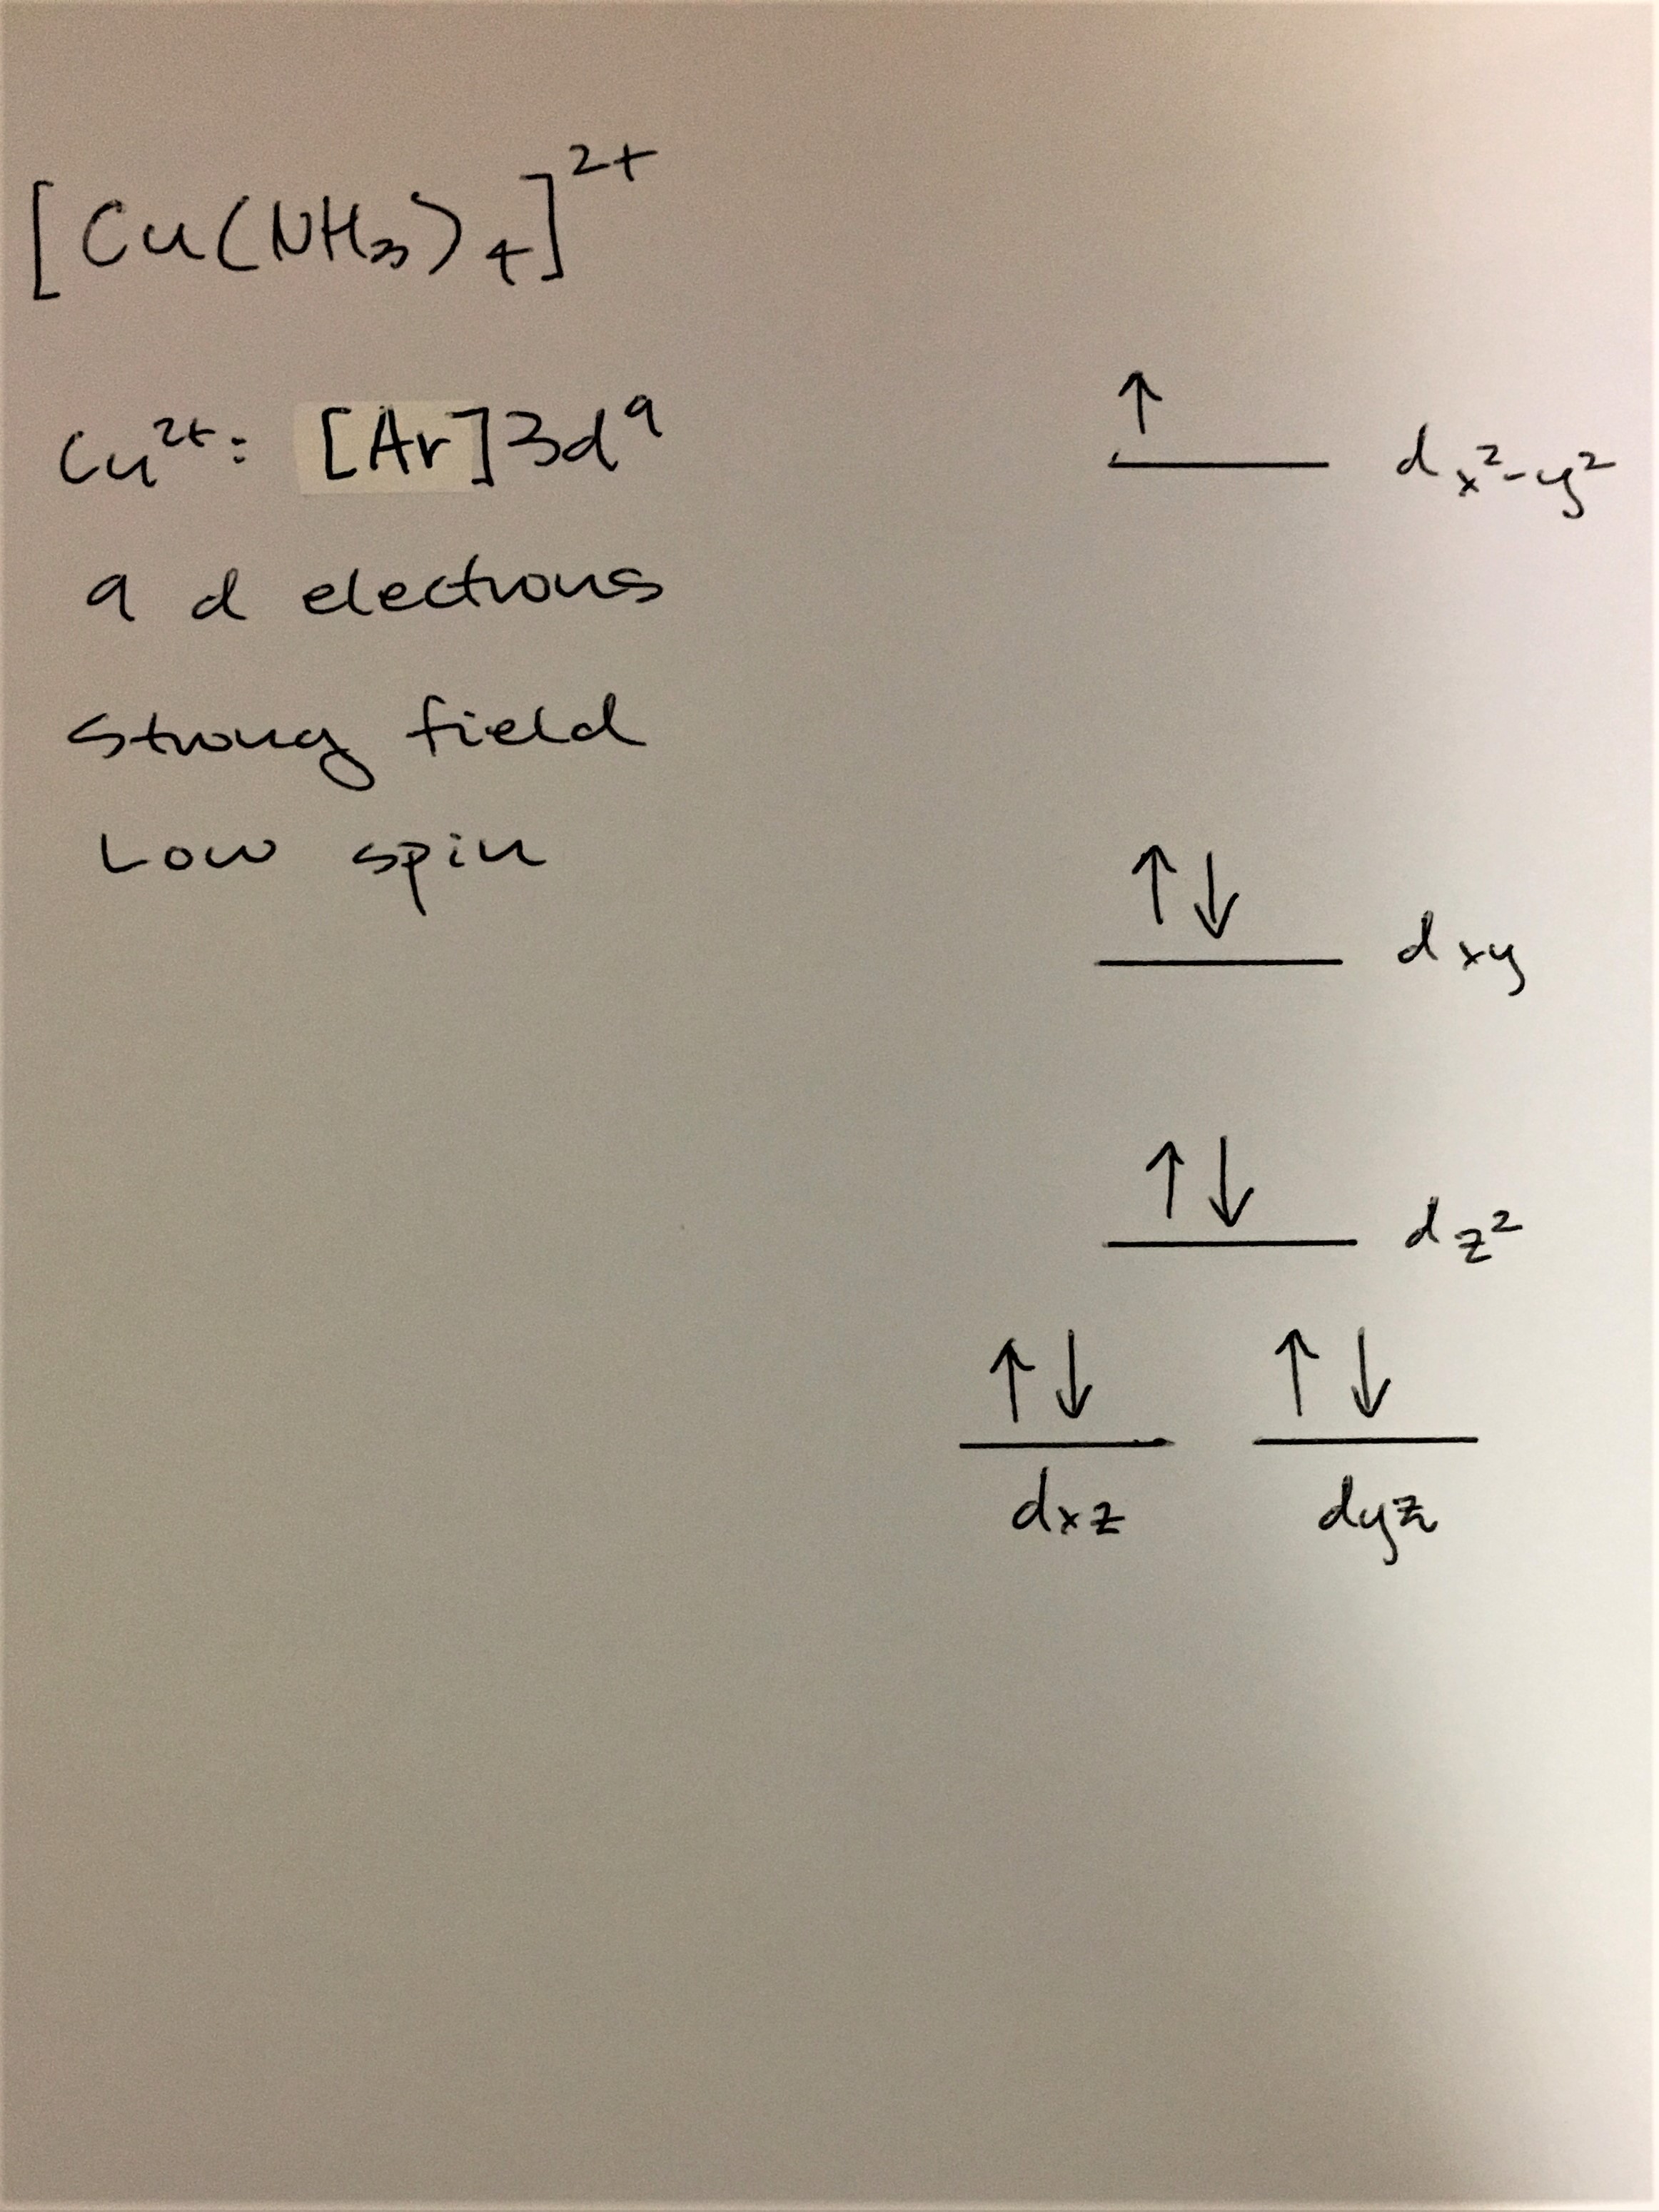 [Cu(NH₃)₄]²⁺
Cu²⁺: [Ar]3d⁹
9 d electrons
Strong field
Low spin
↑
d x²-y²
↑↓
d xy
↑↓
d z²
↑↓ ↑↓
dxz dyz